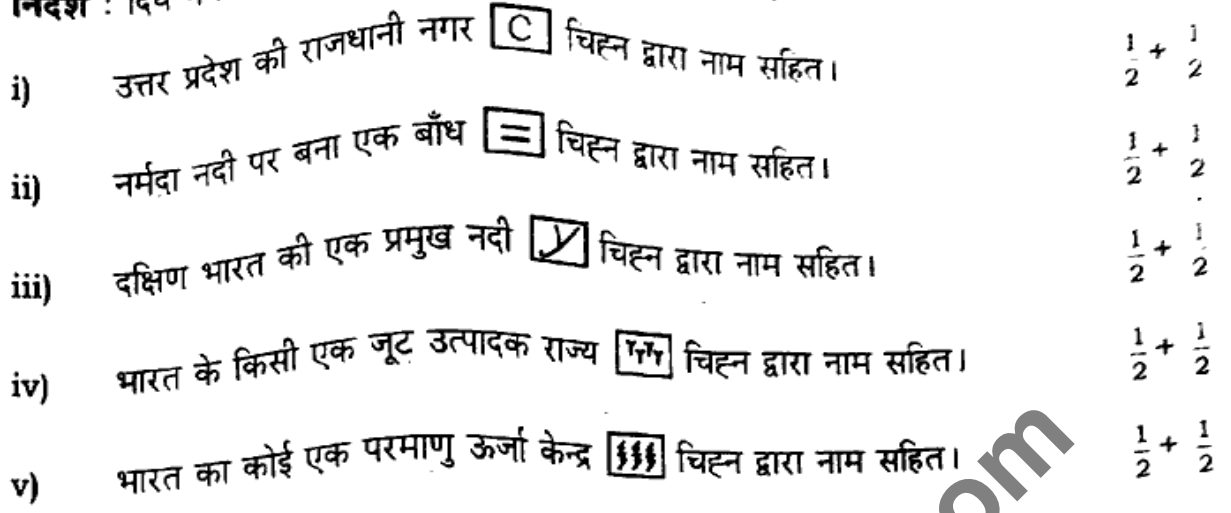 निर्देश :
i) उत्तर प्रदेश की राजधानी नगर C चिह्न द्वारा नाम सहित। 1/2 + 1/2
ii) नर्मदा नदी पर बना एक बाँध = चिह्न द्वारा नाम सहित। 1/2 + 1/2
iii) दक्षिण भारत की एक प्रमुख नदी चिह्न द्वारा नाम सहित। 1/2 + 1/2
iv) भारत के किसी एक जूट उत्पादक राज्य चिह्न द्वारा नाम सहित। 1/2 + 1/2
v) भारत का कोई एक परमाणु ऊर्जा केन्द्र चिह्न द्वारा नाम सहित। 1/2 + 1/2
om